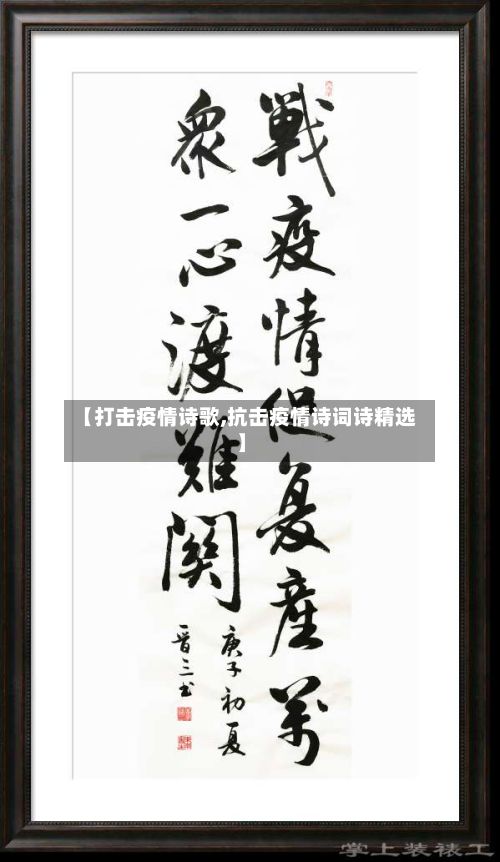 戰疫情促复產萬
衆一心渡難関
庚子初夏
晉三书
【打击疫情诗歌,抗击疫情诗词诗精选
】
掌上装裱工